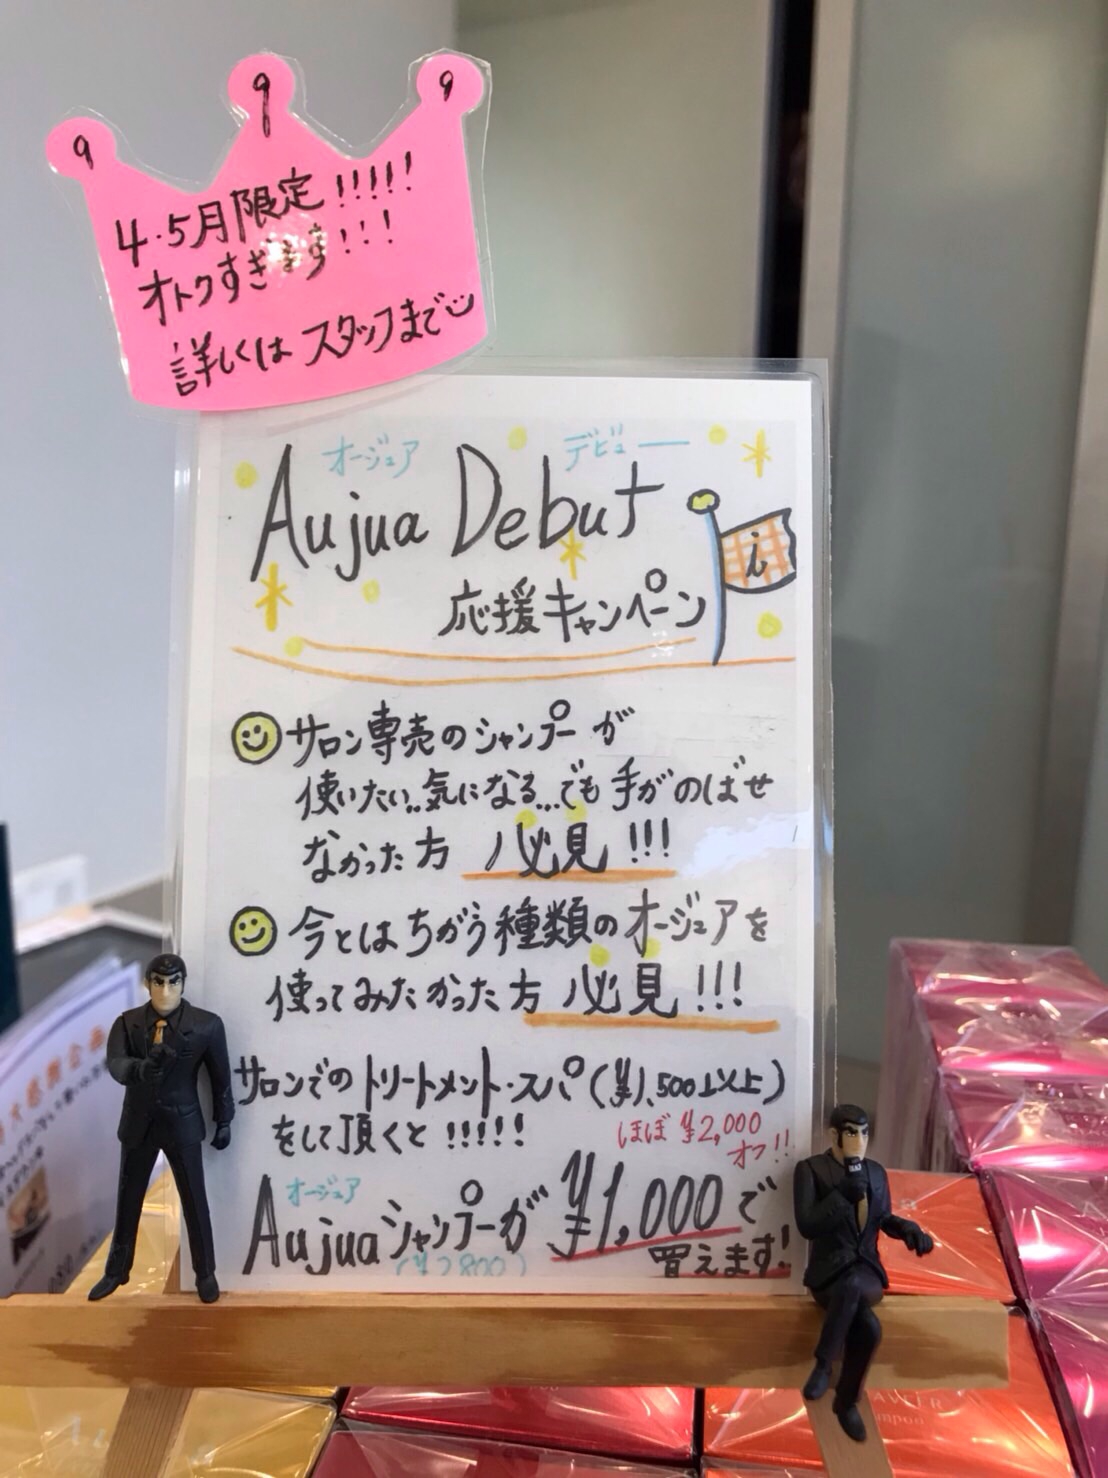 9 9 9
4.5月限定!!!!!
オトクすぎます!!!
詳しくは スタッフまで
オージュア デビュー
Aujua Debut
i
応援キャンペーン
サロン専売のシャンプーが
使いたい..気になる...でも手がのばせ
なかった方 必見!!!
今とはちがう種類のオージュアを
使ってみたかった方 必見!!!
サロンでのトリートメント・スパ(¥1,500以上)
をして頂くと!!!!!
ほぼ ¥2,000
オフ!!
オージュア
Aujuaシャンプーが ¥1,000で
(¥2800)
買えます!